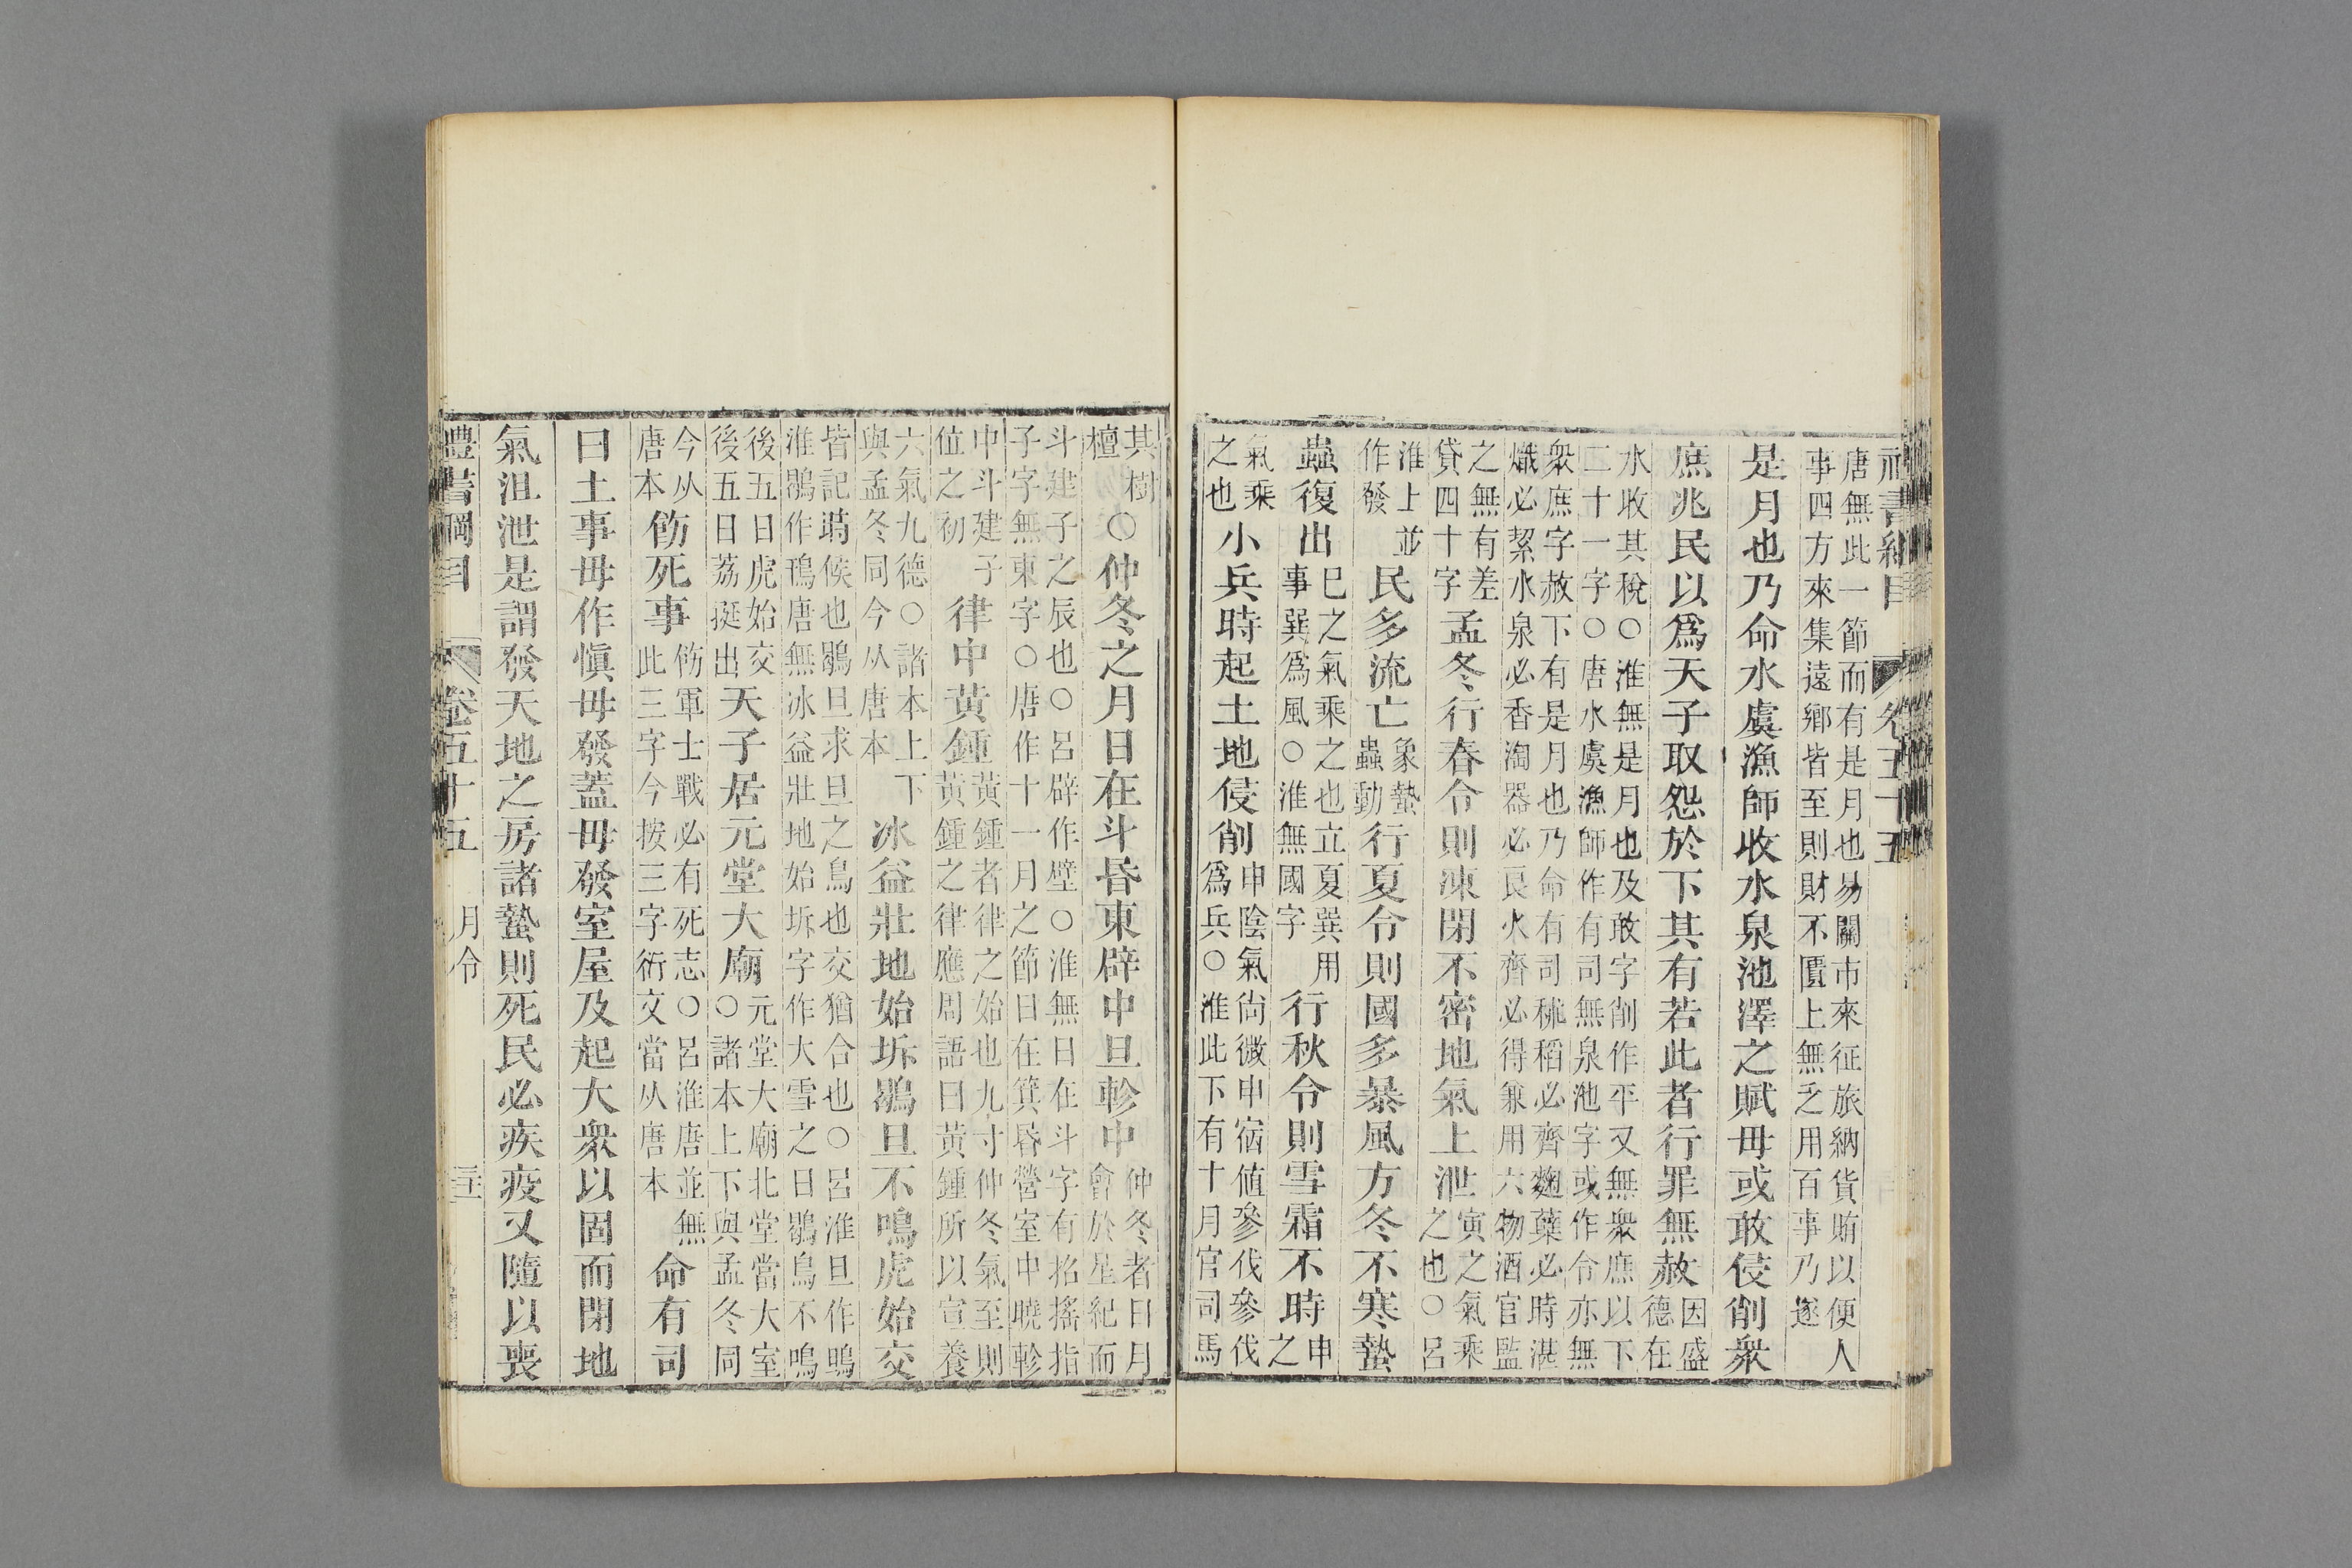 禮書綱目 卷五十五
唐無此一節而有是月也易關市來征旅納貨賄以便人
事四方來集遠鄉皆至則財不匱上無乏用百事乃遂
是月也乃命水虞漁師收水泉池澤之賦毋或敢侵削衆
庶兆民以爲天子取怨於下其有若此者行罪無赦
因盛
德在
水收其稅○淮無是月也及敢字削作平又無衆庶以下
二十一字○唐水虞漁師作有司無泉池字或作令亦無
衆庶字赦下有是月也乃命有司秫稻必齊麴蘖必時湛
熾必絜水泉必香淘器必良火齊必得兼用六物酒官監
之無有差
貸四十字
孟冬行春令則凍閉不密地氣上泄
寅之氣乘
之也○呂
淮上並
作發
民多流亡
象蟄
蟲動
行夏令則國多暴風方冬不寒蟄
蟲復出
巳之氣乘之也立夏巽用
事巽爲風○淮無國字
行秋令則雪霜不時
申
之
氣乘
之也
小兵時起土地侵削
申陰氣尙微申宿値參伐參伐
爲兵○淮此下有十月官司馬
其樹
檀
○仲冬之月日在斗昏東辟中旦軫中
仲冬者日月
會於星紀而
斗建子之辰也○呂辟作壁○淮無日在斗字有招搖指
子字無東字○唐作十一月之節日在箕昏營室中曉軫
中斗建子
位之初
律中黃鍾
黃鍾者律之始也九寸仲冬氣至則
黃鍾之律應周語曰黃鍾所以宣養
六氣九德○諸本上下
與孟冬同今从唐本
冰益壯地始坼鶡旦不鳴虎始交
皆記時候也鶡旦求旦之鳥也交猶合也○呂淮旦作鴠
淮鶡作鳱唐無冰益壯地始坼字作大雪之日鶡鳥不鳴
後五日虎始交
後五日荔挺出
天子居元堂大廟
元堂大廟北堂當大室
○諸本上下與孟冬同
今从
唐本
飭死事
飭軍士戰必有死志○呂淮唐並無
此三字今按三字衍文當从唐本
命有司
曰土事毋作愼毋發蓋毋發室屋及起大衆以固而閉地
氣沮泄是謂發天地之房諸蟄則死民必疾疫又隨以喪
禮書綱目 卷五十五 月令 三